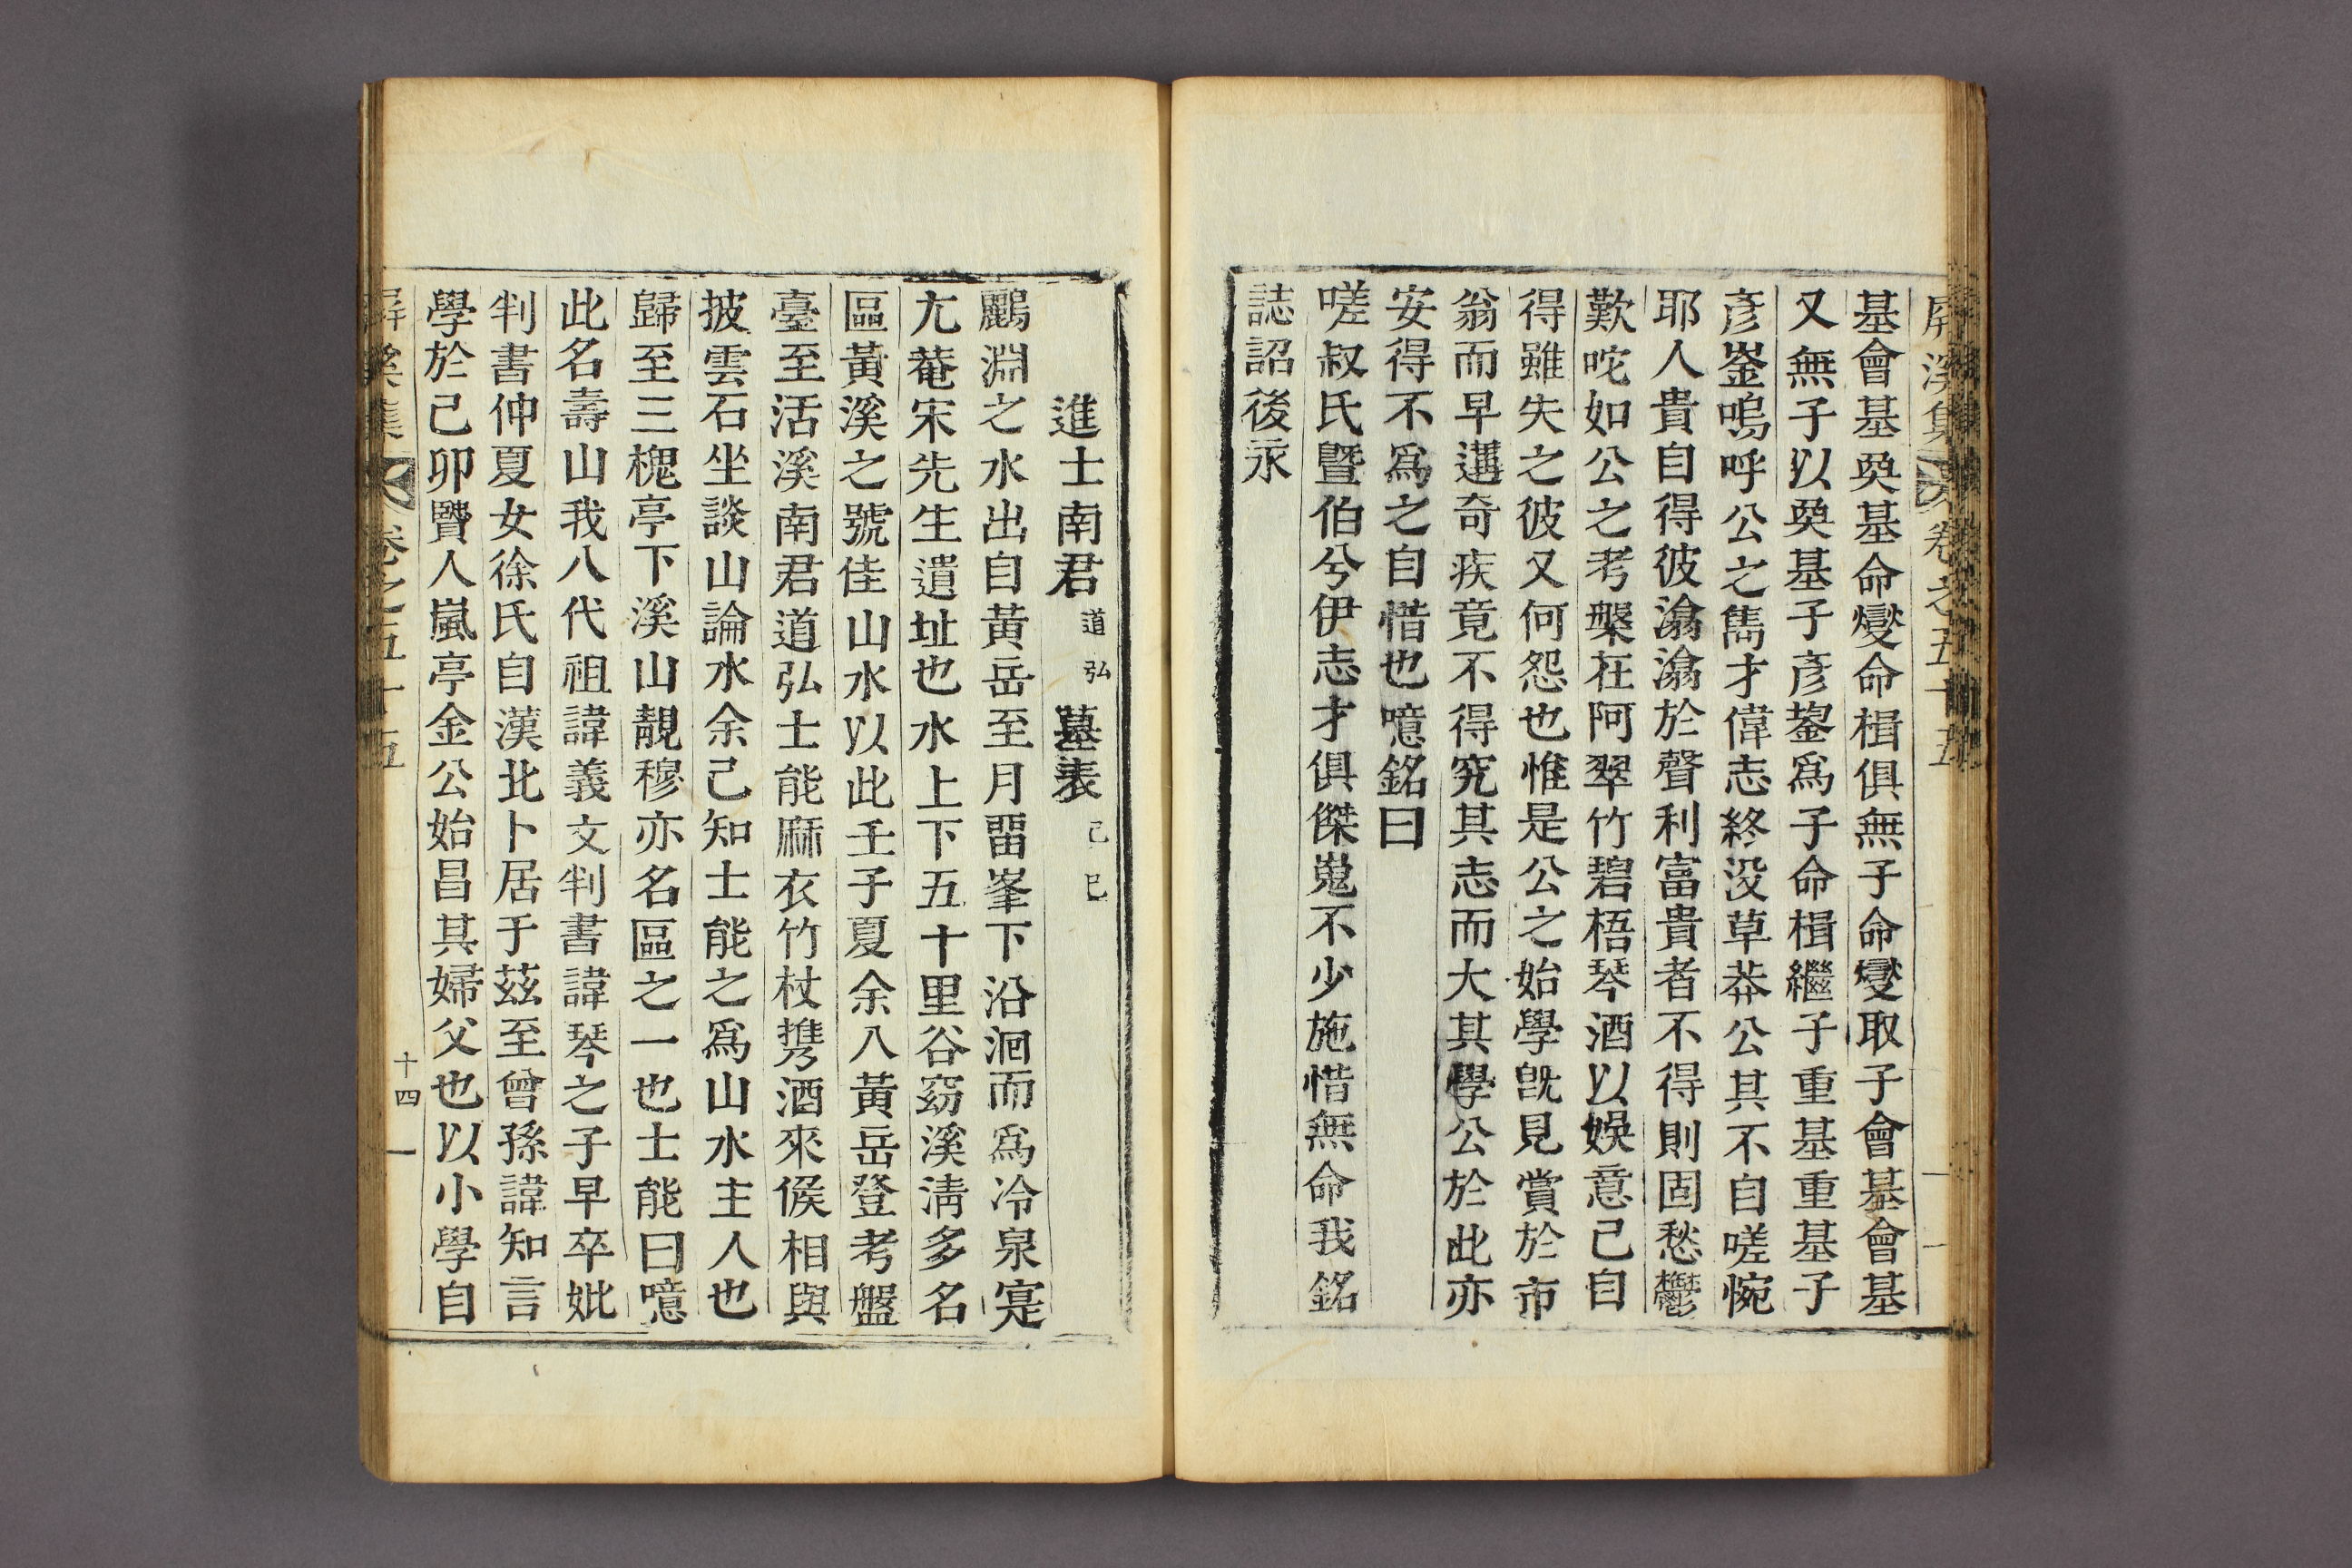 屛溪集 卷之五十五
基會基奭基命燮命楫俱無子命燮取子會基會基
又無子以奭基子彦鋆爲子命楫繼子重基重基子
彦崟嗚呼公之雋才偉志終沒草莽公其不自嗟惋
耶人貴自得彼滃滃於聲利富貴者不得則固愁鬱
歎咜如公之考槃在阿翠竹碧梧琴酒以娛意己自
得雖失之彼又何怨也惟是公之始學旣見賞於市
翁而早遘奇疾竟不得究其志而大其學公於此亦
安得不爲之自惜也噫銘曰
嗟叔氏曁伯兮伊志才俱傑嵬不少施惜無命我銘
誌詔後永
進士南君道弘墓表己巳
鸝淵之水出自黃岳至月留峯下沿洄而爲冷泉寔
尤菴宋先生遺址也水上下五十里谷窈溪淸多名
區黃溪之號佳山水以此壬子夏余入黃岳登考盤
臺至活溪南君道弘士能麻衣竹杖携酒來候相與
披雲石坐談山論水余己知士能之爲山水主人也
歸至三槐亭下溪山靚穆亦名區之一也士能曰噫
此名壽山我八代祖諱義文判書諱琴之子早卒妣
判書仲夏女徐氏自漢北卜居于茲至曾孫諱知言
學於己卯賢人嵐亭金公始昌其婦父也以小學自
屛溪集 卷之五十五 十四